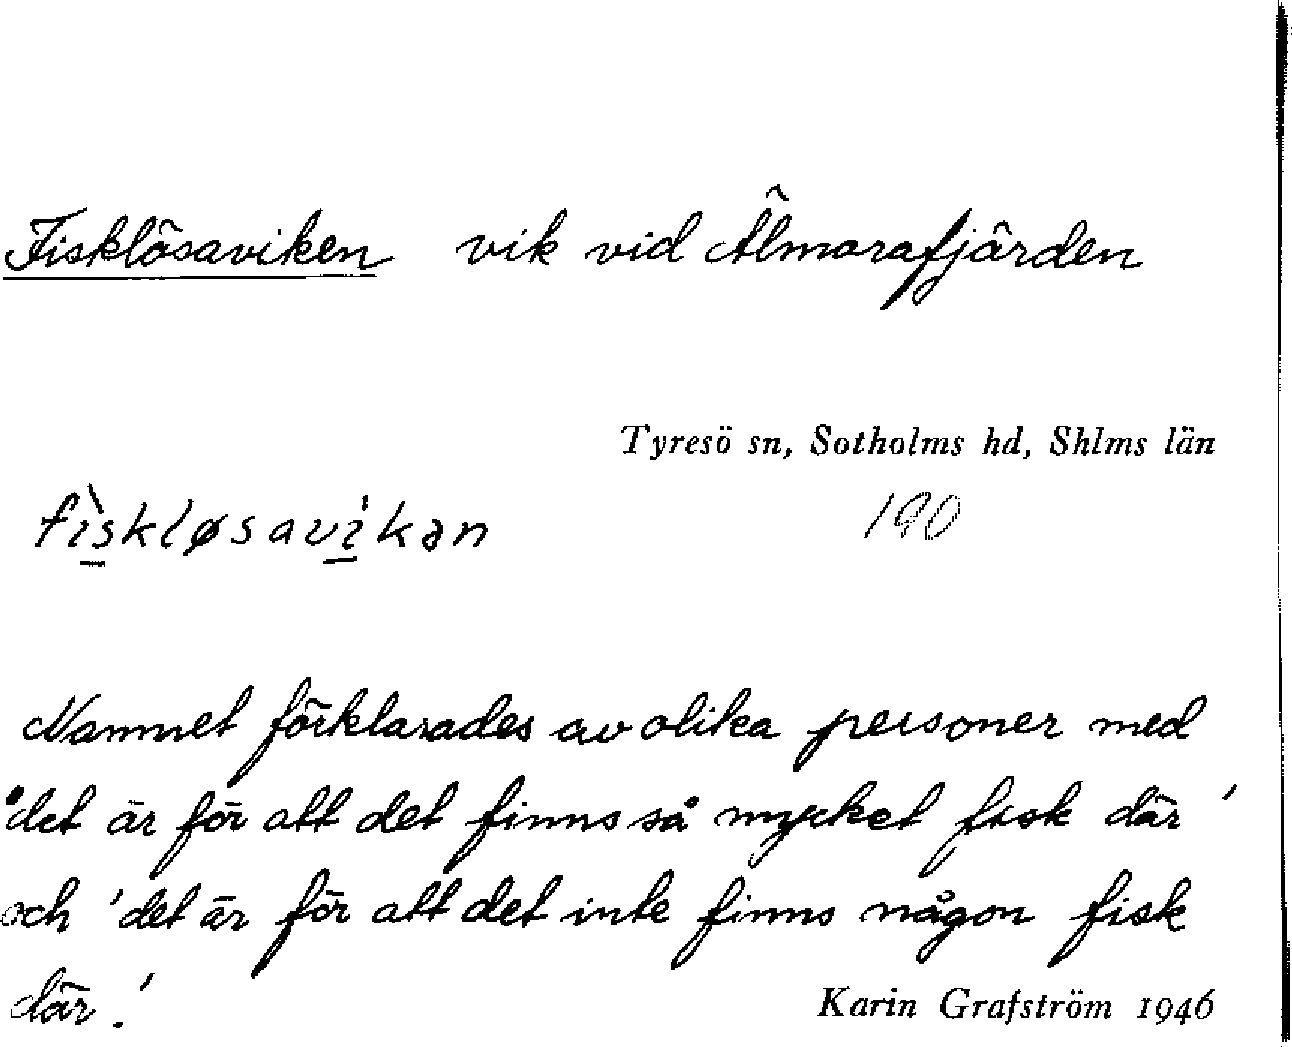 Fisklösaviken vik vid Älmorafjärden
Tyresö sn, Sotholms hd, Shlms län
fìskløsavi̍kən 190
Namnet förklarades av olika personer med
'det är för att det finns så mycket fisk där'
och 'det är för att det inte finns någon fisk
där.'
Karin Grafström 1946